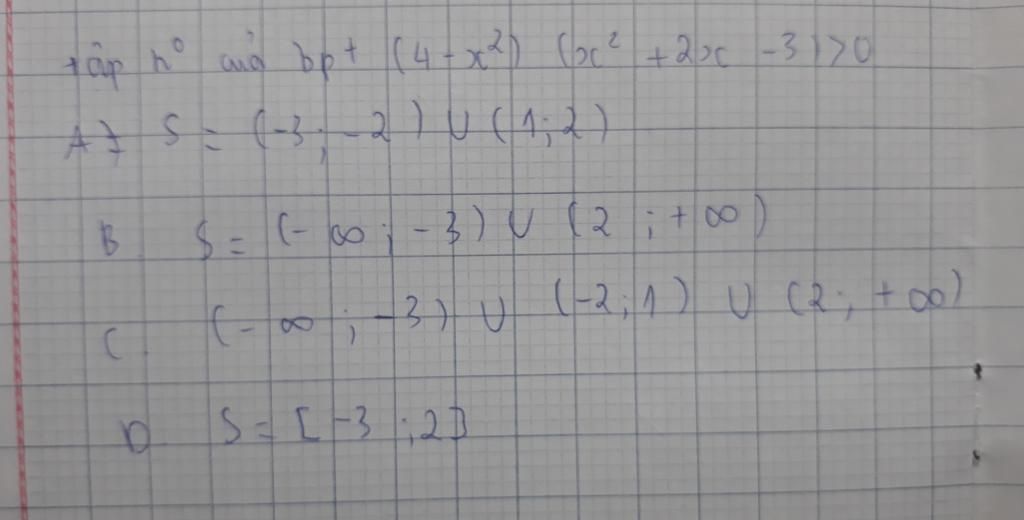 tâp n⁰ củả bpt (4 - x²) (x² + 2x - 3) > 0
A} S = (-3 ; -2) ∪ (1 ; 2)
B S = (-∞ ; -3) ∪ (2 ; +∞)
C. (-∞ ; -3) ∪ (-2 ; 1) ∪ (2 ; +∞)
D S = [-3 ; 2]